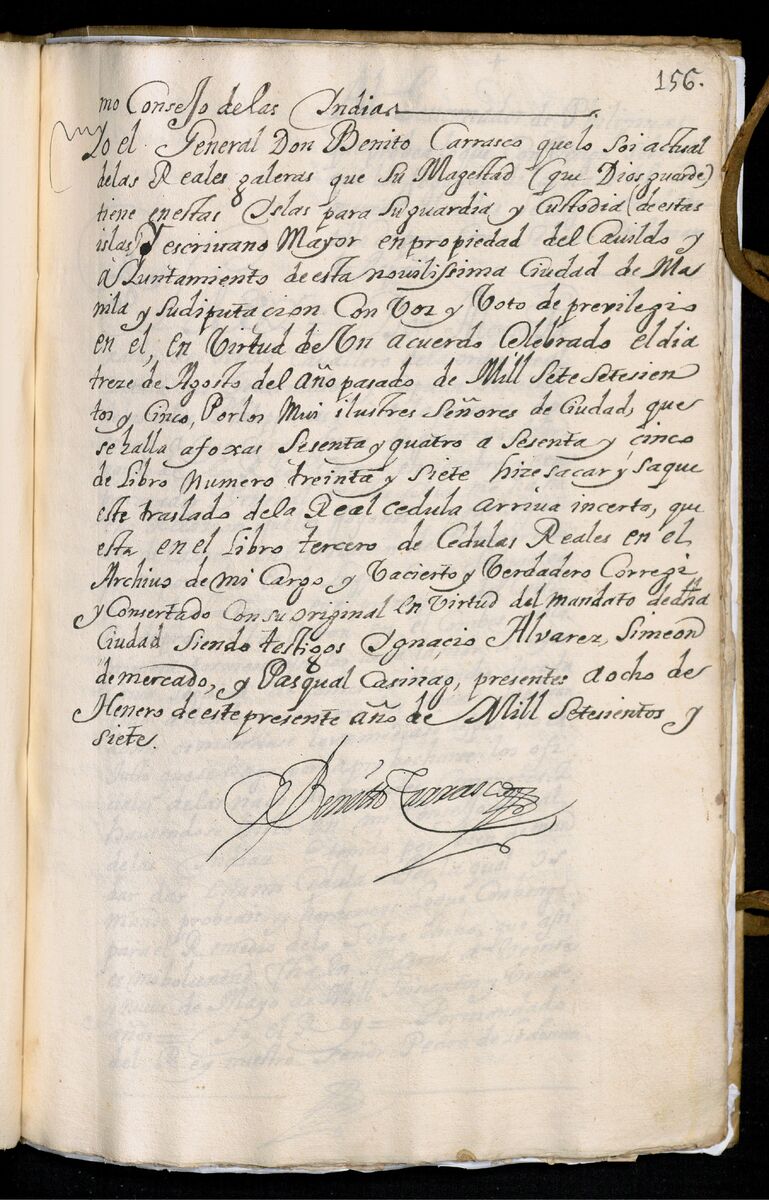 156.
mo Consejo de las Indias
Yo el General Don Benito Carrasco que lo soi actual
de las Reales galeras que su Magestad (que Dios guarde)
tiene en estas Islas para su guardia y Custodia (de estas
islas) Y escrivano Mayor en propiedad del Cavildo y
Ayuntamiento de esta novilissima Ciudad de Ma
nila y su diputacion con Voz y Voto de previlegio
en el, en Virtud de Un acuerdo Celebrado el dia
treze de Agosto del año pasado de Mill Sete Setesien
tos y Cinco, Por los Mui ilustres Señores de Ciudad, que
se halla a foxas Sesenta y quatro a Sesenta y cinco
de Libro Numero treinta y Siete hize sacar y saque
este traslado de la Real cedula arriva incerta, que
esta en el Libro tercero de Cedulas Reales en el
Archivo de mi Cargo y Va cierto y Verdadero Corregi
y Consertado con su original en Virtud del mandato de dha
Ciudad siendo testigos Ignacio Alvarez, Simeon
de mercado, y Pasqual Casinag, presentes a ocho de
Henero de este presente año de Mill Setesientos y
siete.
Benito Carrasco